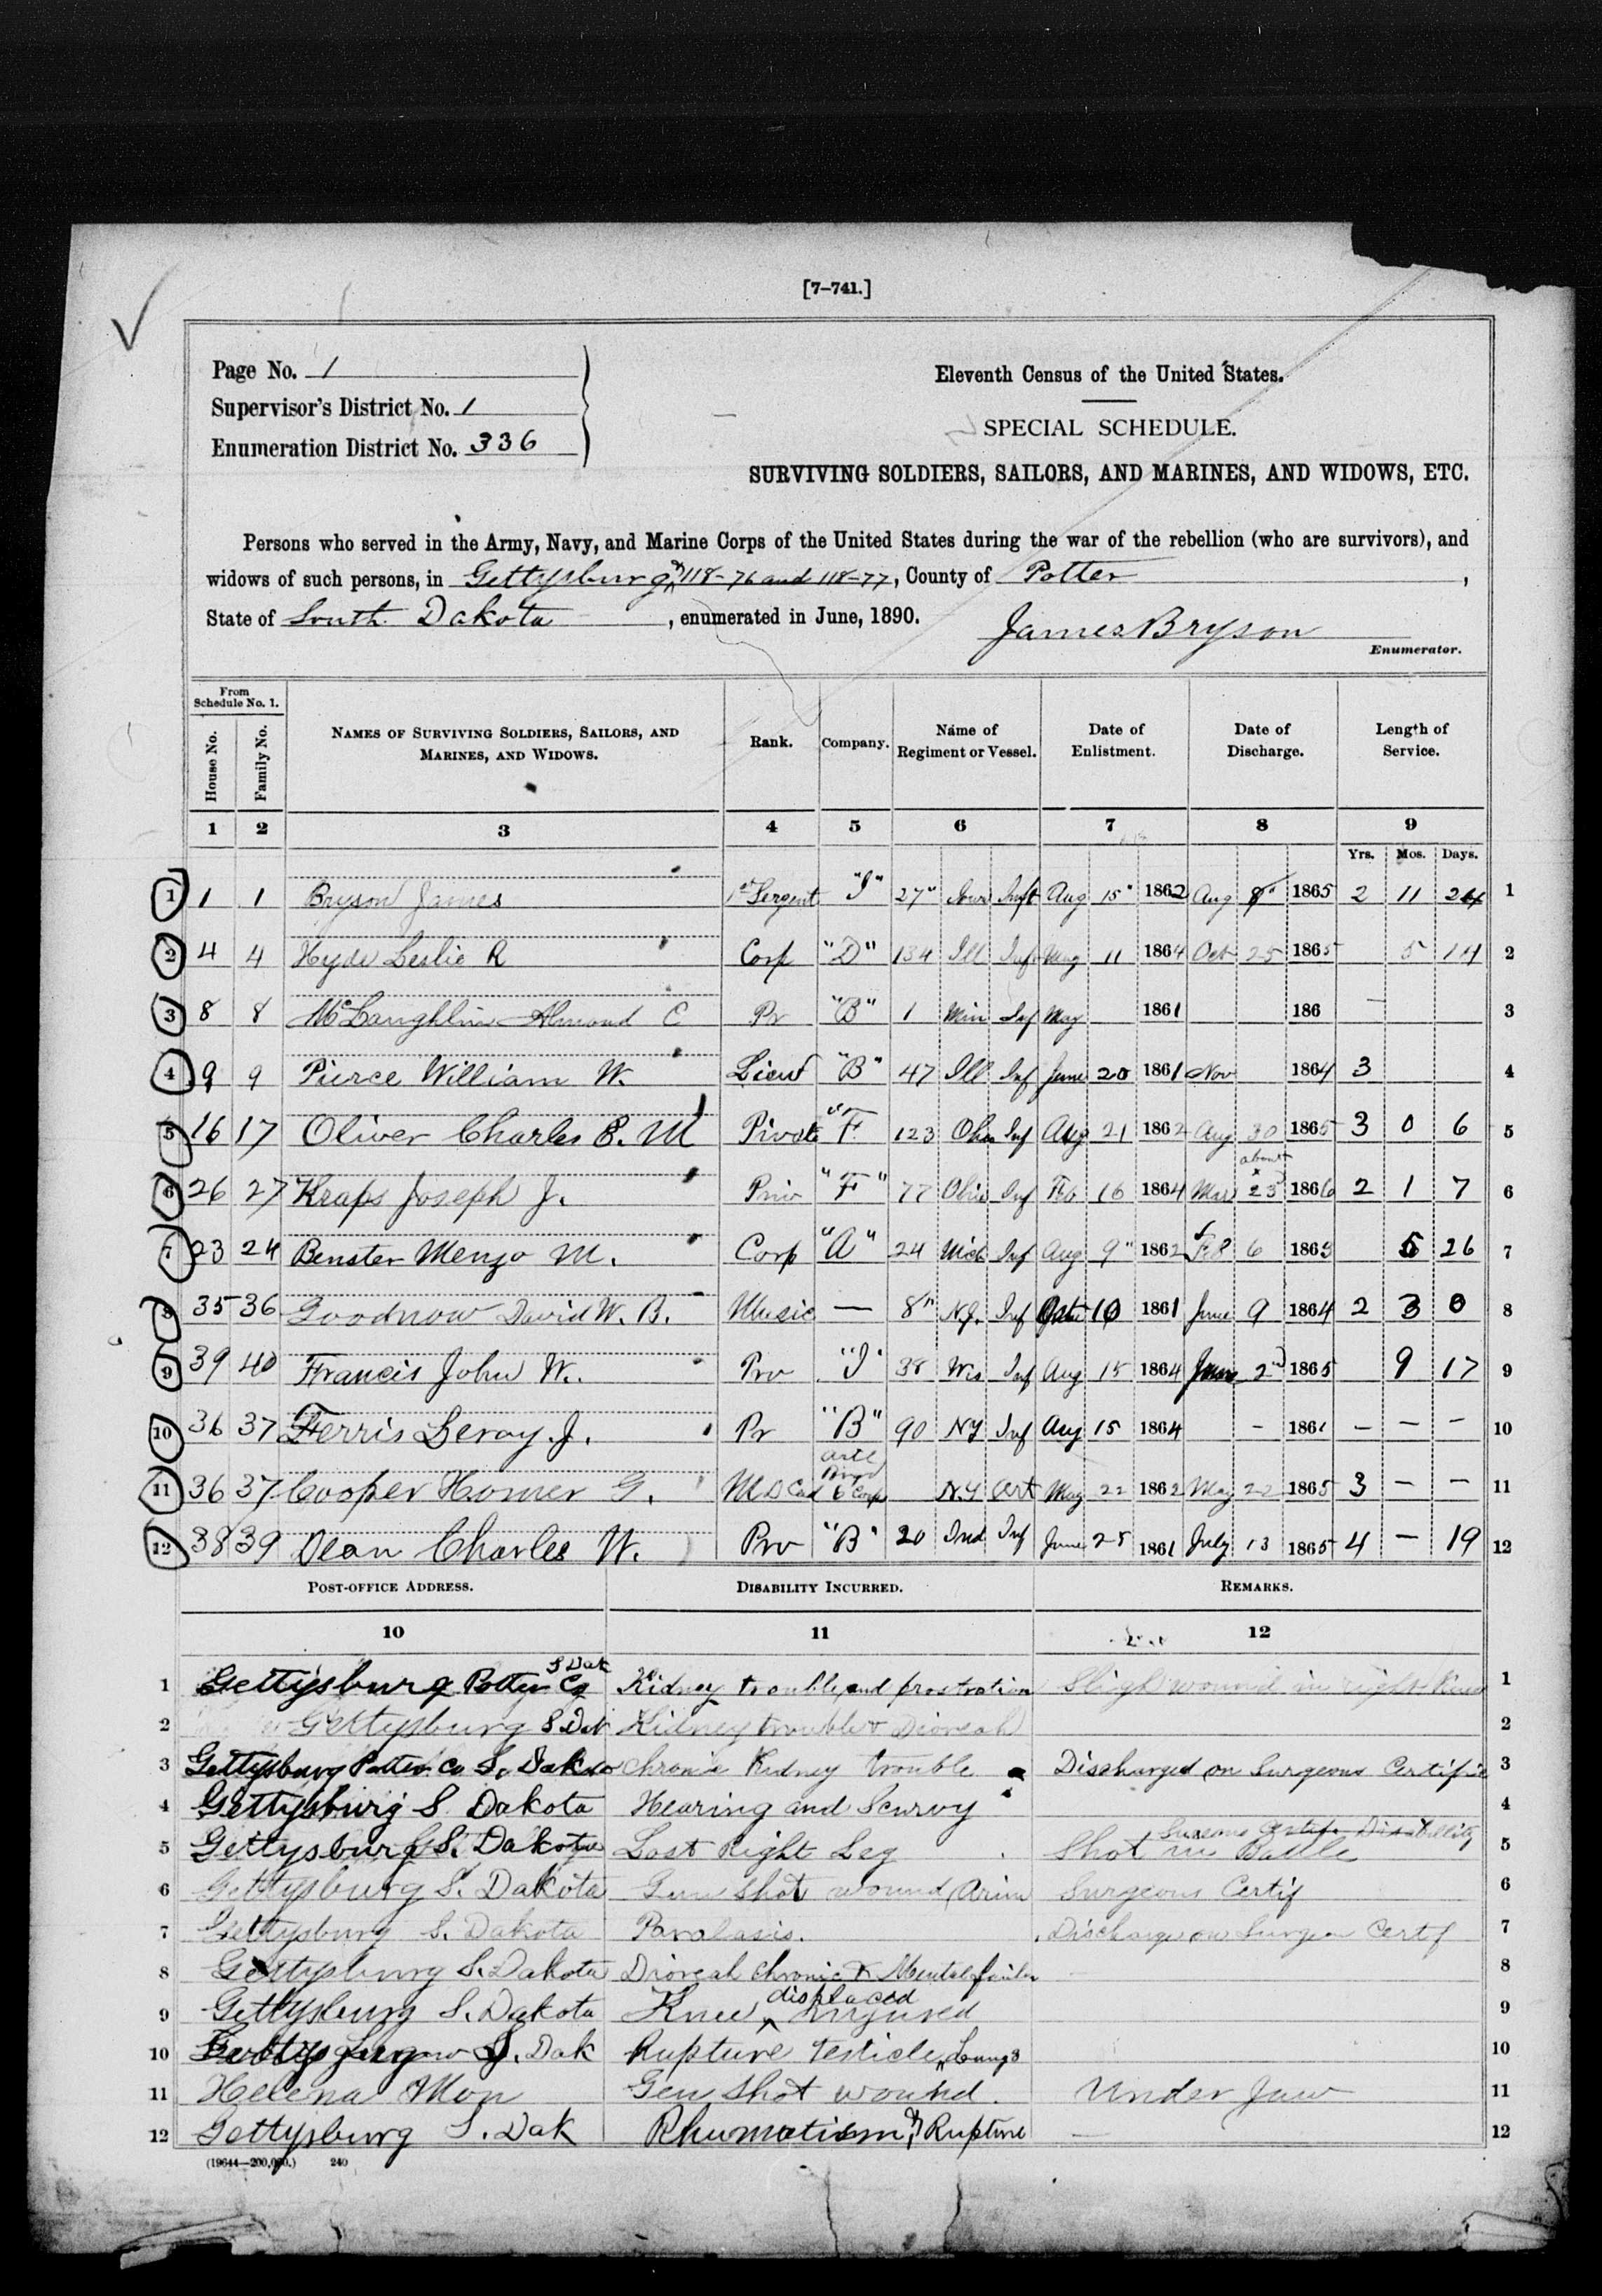 [7–741.]
Page No. 1
Supervisor's District No. 1
Enumeration District No. 336
Eleventh Census of the United States.
SPECIAL SCHEDULE.
SURVIVING SOLDIERS, SAILORS, AND MARINES, AND WIDOWS, ETC.
Persons who served in the Army, Navy, and Marine Corps of the United States during the war of the rebellion (who are survivors), and
widows of such persons, in Gettysburg 118-76 and 118-77, County of Potter,
State of South Dakota, enumerated in June, 1890.
James Bryson
Enumerator.
From Schedule No. 1.
House No. Family No. NAMES OF SURVIVING SOLDIERS, SAILORS, AND MARINES, AND WIDOWS. Rank. Company. Name of Regiment or Vessel. Date of Enlistment. Date of Discharge. Length of Service.
1 2 3 4 5 6 7 8 9
Yrs. Mos. Days.
1 1 1 Bryson James 1st Sergent "I" 27" Iowa Inft Aug 15" 1862 Aug 8" 1865 2 11 24 1
2 4 4 Hyde Leslie R Corp "D" 134 Ill Inf May 11 1864 Oct 25 1865 5 14 2
3 8 8 McLaughlin Almond C Pr "B" 1 Min Inf May 1861 186 — 3
4 9 9 Pierce William W. Lieut "B" 47 Ill Inf June 20 1861 Nov 1864 3 4
5 16 17 Oliver Charles E. M Pivate "F 123 Ohio Inf Aug 21 1862 Aug 30 1865 3 0 6 5
about
6 26 27 Kraps Joseph J. Priv "F" 77 Ohio Inf Feb 16 1864 Mar 23 1866 2 1 7 6
7 23 24 Benster Menzo M. Corp "A" 24 Mich Inf Aug 9" 1862 Feb 6 1863 5 26 7
8 35 36 Goodnow David W. B. Music — 8" N.J. Inf 10 1861 June 9 1864 2 3 0 8
9 39 40 Francis John W. Prv "I" 38 Wis Inf Aug 15 1864 June 2nd 1865 9 17 9
10 36 37 Ferris Leroy. J. Pr "B" 90 NY Inf Aug 15 1864 — 1861 — — — 10
11 36 37 Cooper Homer G. M D Cad Artl 6 Corp N.Y Art May 22 1862 May 22 1865 3 — — 11
12 38 39 Dean Charles W. Prv "B" 20 Ind Inf June 25 1861 July 13 1865 4 — 19 12
POST-OFFICE ADDRESS. DISABILITY INCURRED. REMARKS.
10 11 12
1 Gettysburg Potter Co S Dak Kidney trouble and prostration Sligh wound in right Knee 1
2 Gettysburg S. Dak Kidney trouble & Dioreah 2
3 Gettysburg Potter Co S. Dakota chronic Kidney trouble Discharged on Surgeons Certific 3
4 Gettysburg S. Dakota Hearing and Scurvy 4
5 Gettysburg S. Dakota Lost Right Leg Shot in Battle Disability 5
6 Gettysburg S. Dakota Gun Shot wound Arim Surgeons Certif 6
7 Gettysburg S. Dakota Paralasis. Discharge on Surgeon Certf 7
8 Gettysburg S. Dakota Dioreah chronic & Mental failur 8
9 Gettysburg S. Dakota Knee displaced injured 9
10 S. Dak Rupture Testicle, Lungs 10
11 Helena Mon Gen Shot wound. Under Jaw 11
12 Gettysburg S. Dak Rhumatism & Rupture — 12
(19644—200,000.) 240